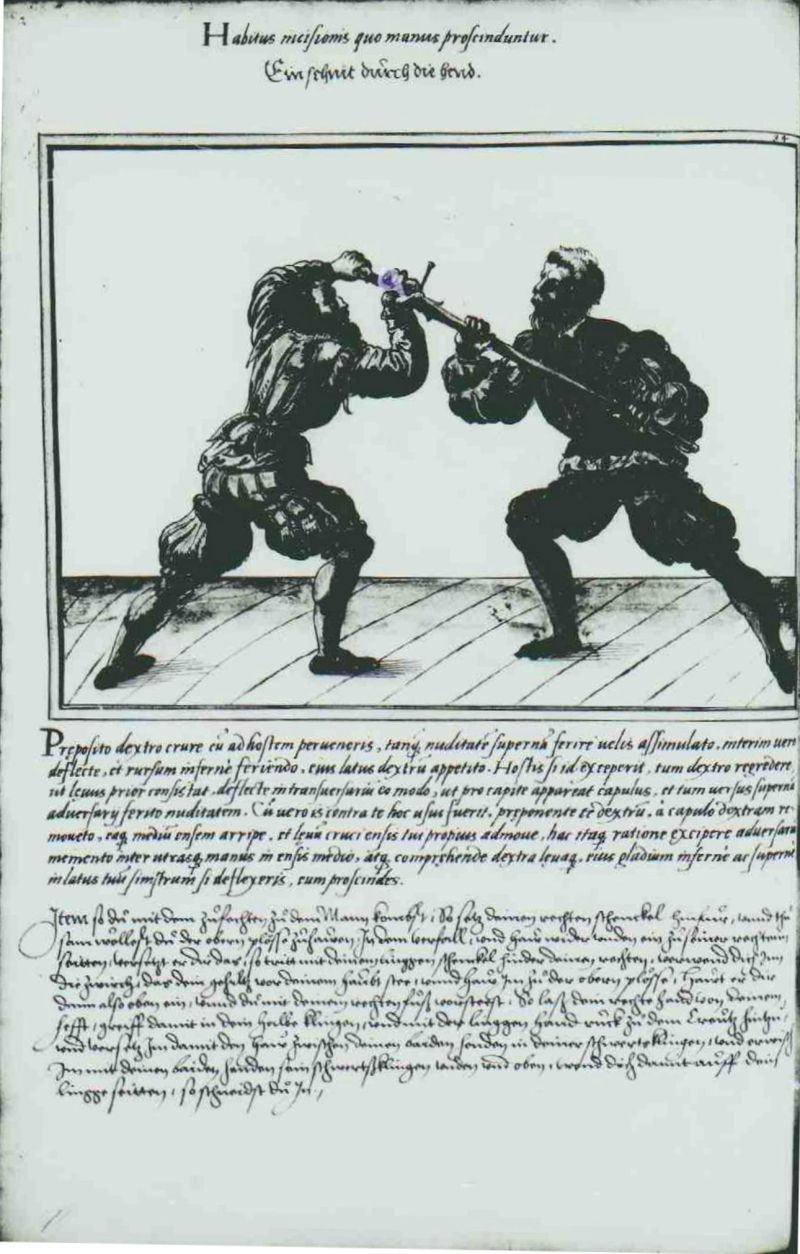 Habitus incisionis quo manus proscinduntur.
Ein schnit durch die hend.
34
Preposito dextro crure cū ad hostem perueneris, tanq̃ nuditatē supernā ferire uelis assimulato, interim uero
deflecte, et rursum infernè feriendo, eius latus dextrū appetito. Hostis si id exceperit, tum dextro regredere,
ut leuus prior consistat, deflecte in transuersariū eo modo, ut pro capite appareat capulus, et tum uersus supernā
aduersarÿ ferito nuditatem. Cū uero is contra te hoc usus fuerit, preponente te dextrū, à capulo dextram re
moueto, eaq̃ mediū ensem arripe, et leuā cruci ensis tui propius admoue, hac itaq̃ ratione excipere aduersariū
memento inter utrasq̃ manus in ensis medio, atq̃ comprehende dextra leuaq̃ eius gladium infernè ac supernè
in latus tuū sinistrum si deflexeris, eum proscindes.
Item so du mit dem zufechten zu dem Mann kombst, So setz deinen rechten schenckel hinfur, unnd thu
sam wöllest du der obern plösse zuhawen, In dem verfall, unnd haw wider unden ein zu seiner rechten
seitten, versetzt er dir das, so tritt mit deinem linggen schenckel hinder deinen rechten, verwend dich Im
die zwirch, das dein gehiltz vor deinem haubt stee, unnd haw Im zu der obern plösse, Hawt er dir
dann also oben ein, unnd du mit deinem rechten fuß vorsteest, So laß dein rechte hand von deinem
hefft, greiff damit in dein halbe klingen, unnd mit der linggen hand ruck zu dem Creutz hinzu,
unnd versetz Im damit den haw zwischen deinen baiden henden in deiner schwertsklingen, unnd erwisch
Im mit deinen baiden henden sein schwertsklingen unden und oben, wend dich damit auff dein
lingge seitten, so schneidst du In,